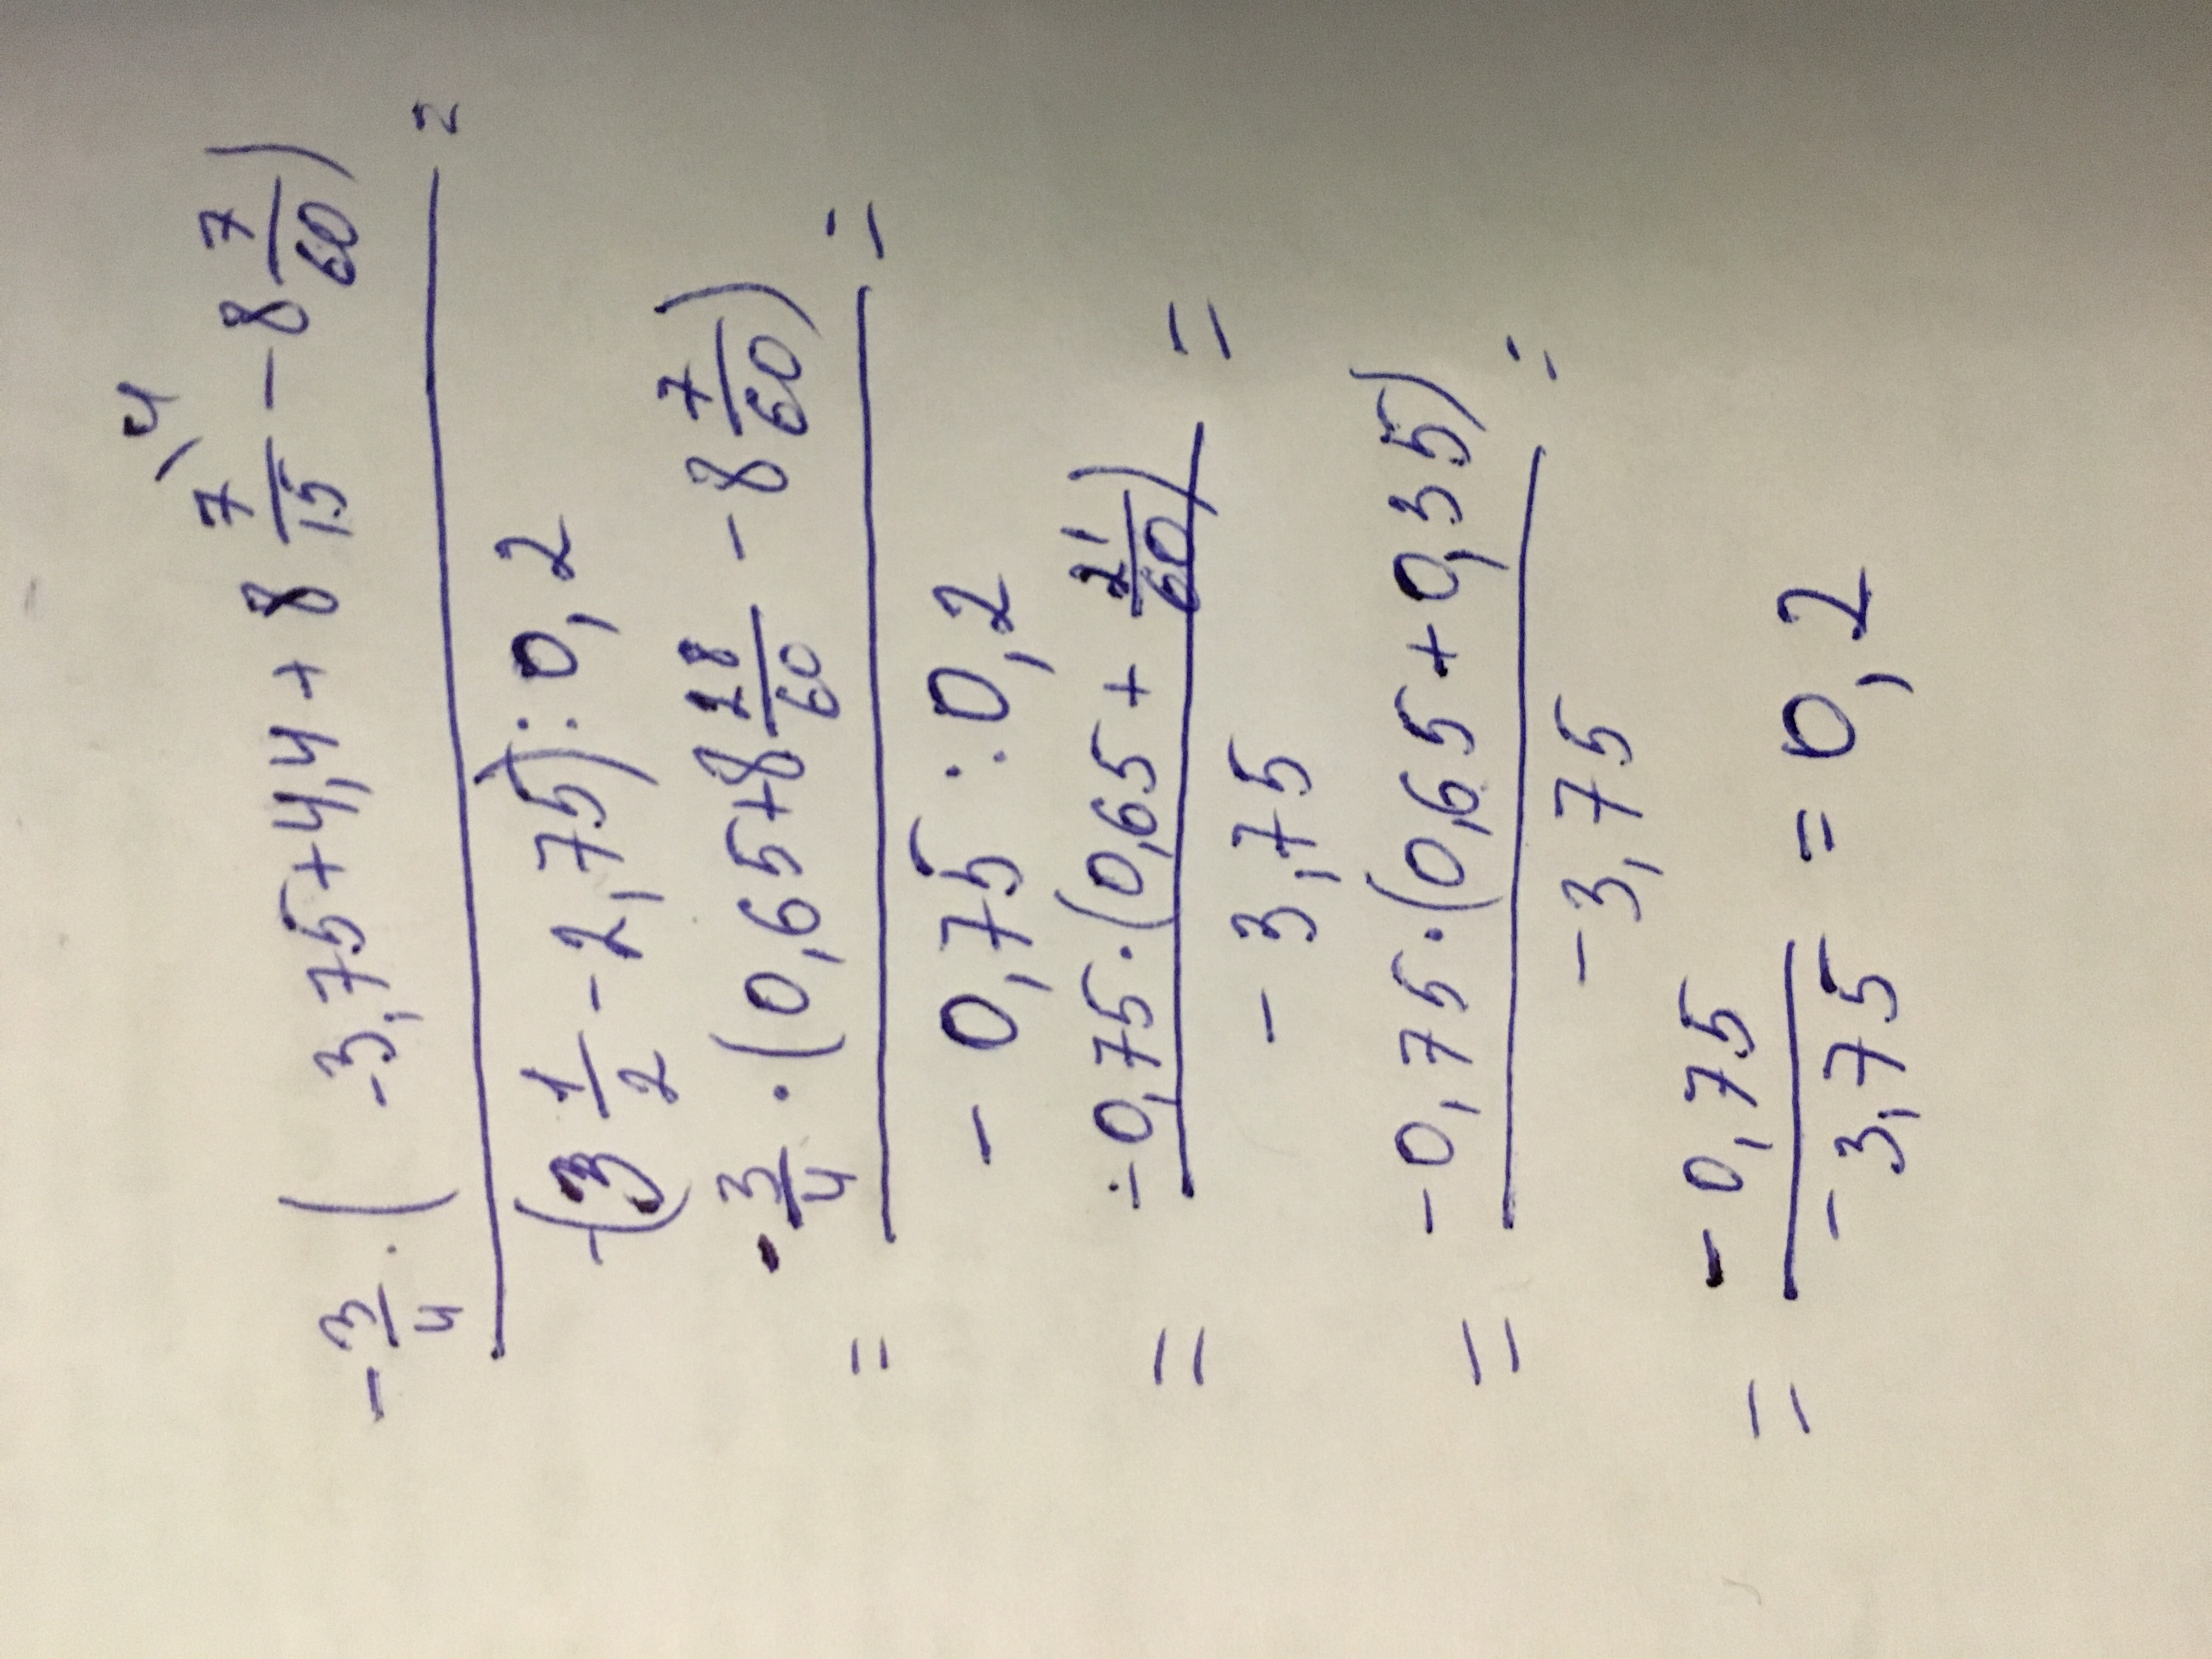 -3/4 · ( -3,75+4,4+8 7/15 \4 -8 7/60) =
-(3 1/2 -2,75):0,2
= -3/4 · (0,65+8 28/60 -8 7/60) =
-0,75:0,2
= -0,75·(0,65+ 21/60) =
-3,75
= -0,75·(0,65+0,35) =
-3,75
= -0,75/-3,75 = 0,2